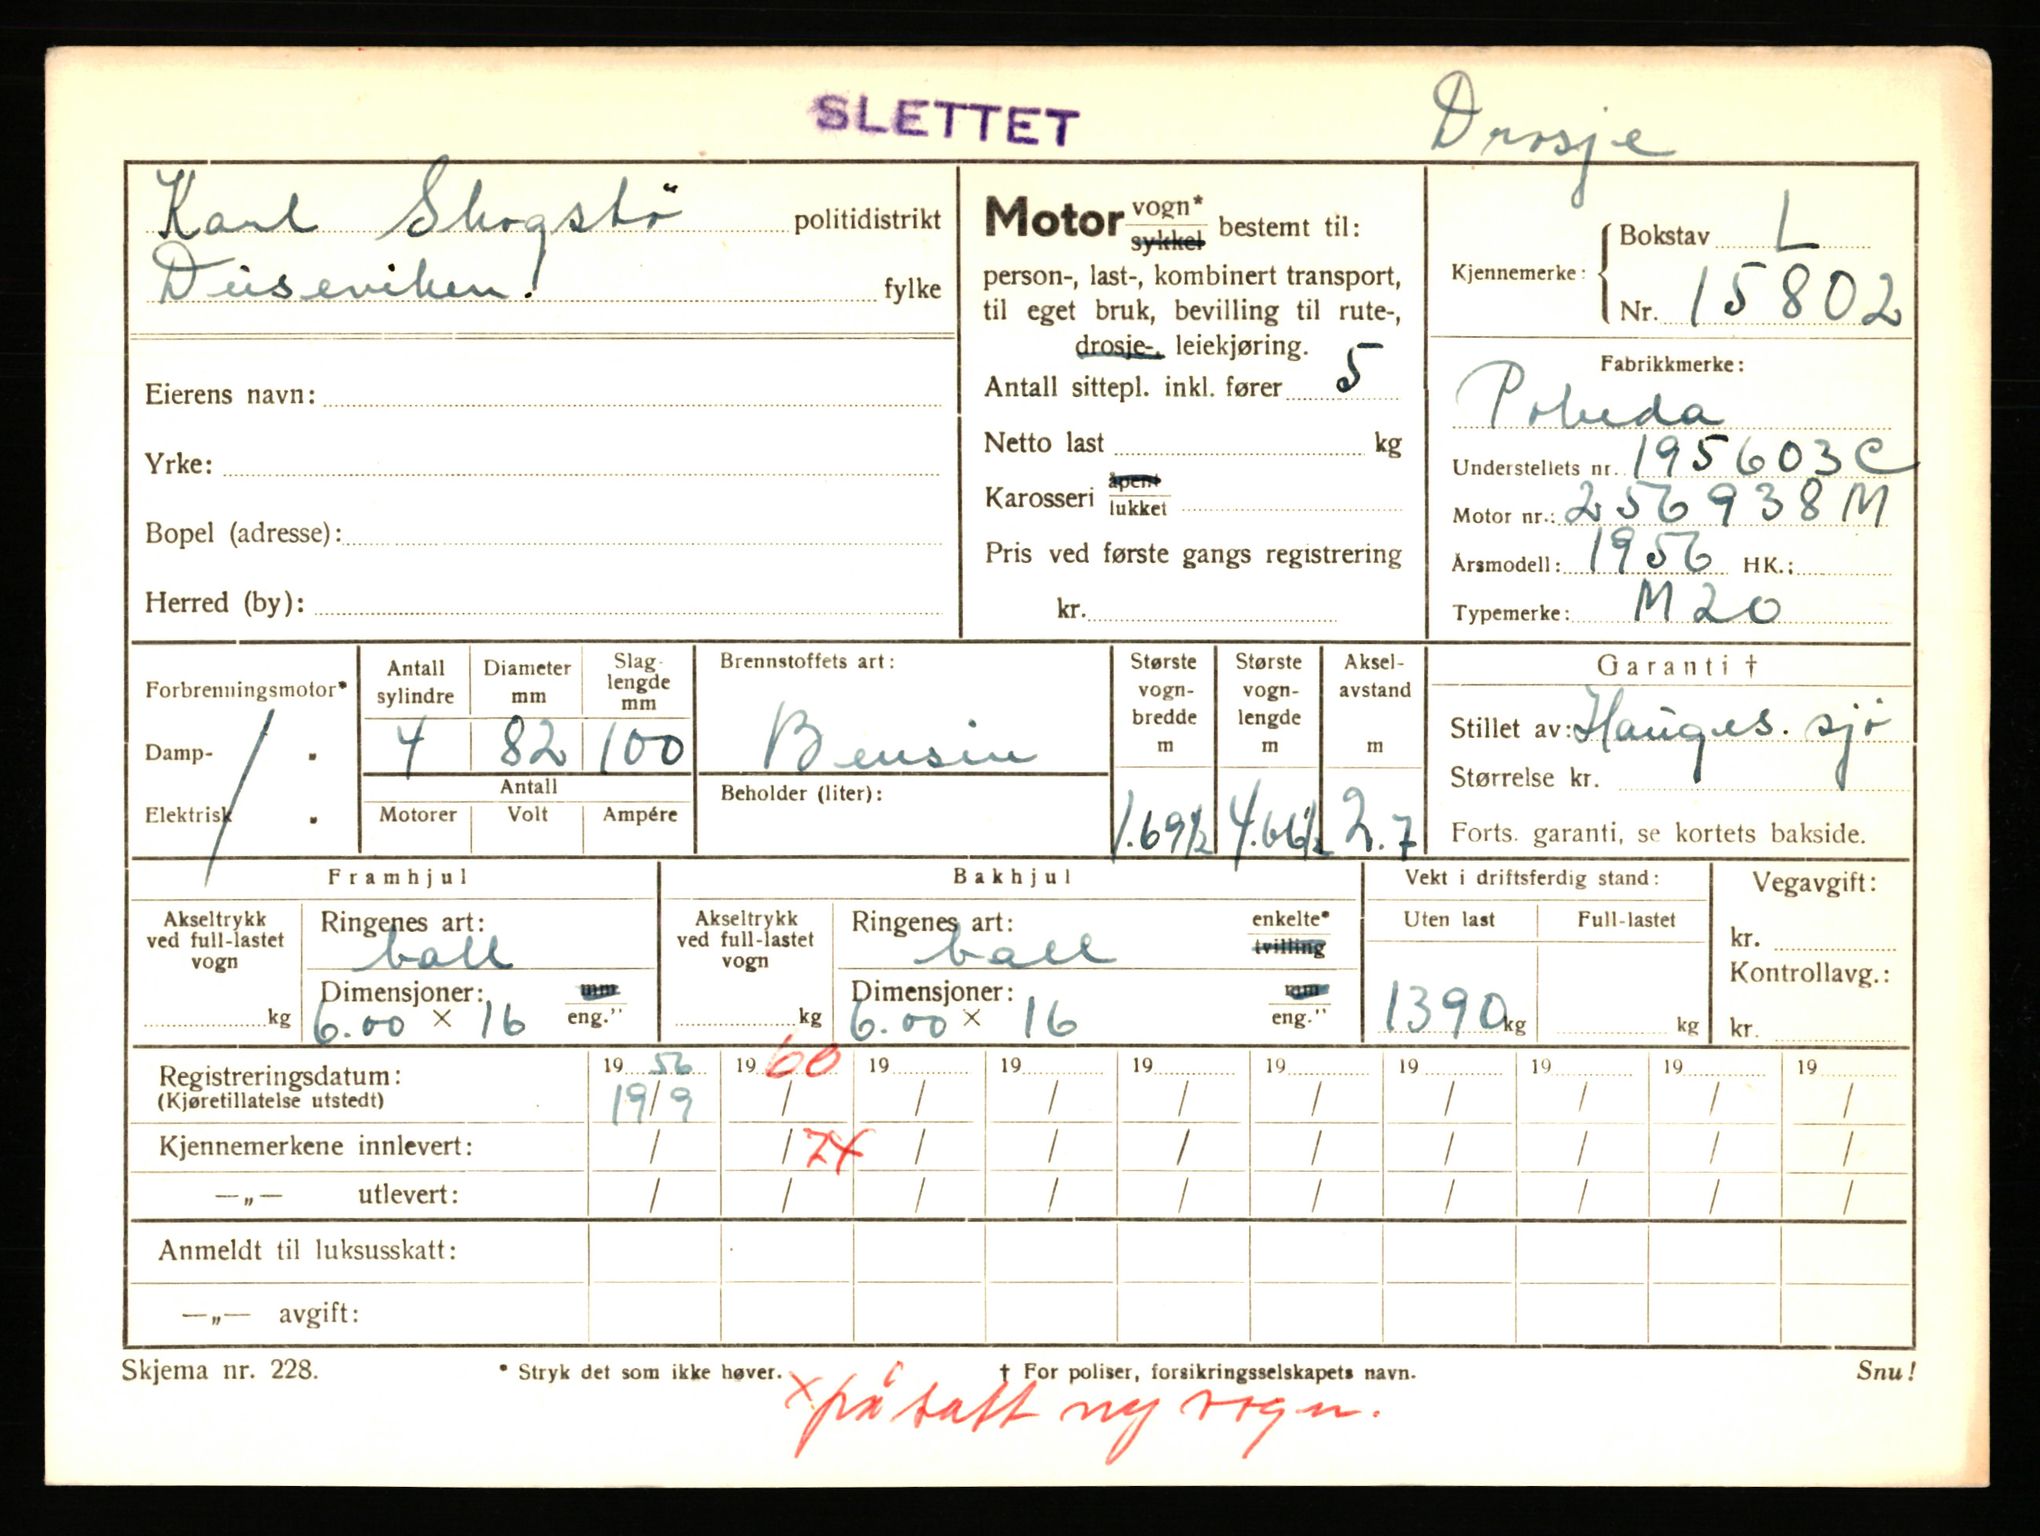 SLETTET
Drosje
Karl Skogstö politidistrikt
Duseviken. fylke
Eierens navn:
Yrke:
Bopel (adresse):
Herred (by):
Motor vogn* sykkel bestemt til:
person-, last-, kombinert transport,
til eget bruk, bevilling til rute-,
drosje-, leiekjøring.
Antall sittepl. inkl. fører 5
Netto last kg
Karosseri åpent lukket
Pris ved første gangs registrering
kr.
Kjennemerke: Bokstav L
Nr. 15802
Fabrikkmerke:
Pobeda
Understellets nr. 195603C
Motor nr.: 256938M
Årsmodell: 1956 HK.:
Typemerke: M20
Forbrenningsmotor*
Damp- "
Elektrisk "
Antall sylindre
4
Diameter mm
82
Slag-lengde mm
100
Antall
Motorer Volt Ampére
Brennstoffets art:
Bensin
Beholder (liter):
Største vogn-bredde m
1.69½
Største vogn-lengde m
4.66½
Aksel-avstand m
2.7
Garanti †
Stillet av: Hauges. sjö
Størrelse kr.
Forts. garanti, se kortets bakside.
Framhjul
Akseltrykk ved full-lastet vogn
kg
Ringenes art:
ball
Dimensjoner: mm
6.00 × 16 eng."
Bakhjul
Akseltrykk ved full-lastet vogn
kg
Ringenes art: enkelte*
ball tvilling
Dimensjoner: mm
6.00 × 16 eng."
Vekt i driftsferdig stand:
Uten last Full-lastet
1390 kg kg
Vegavgift:
kr.
Kontrollavg.:
kr.
Registreringsdatum: 1956 1960 19 19 19 19 19 19 19 19
(Kjøretillatelse utstedt) 19/9 / / / / / / / / /
Kjennemerkene innlevert: / / 7x / / / / / / / /
—„— utlevert: / / / / / / / / / /
Anmeldt til luksusskatt:
—„— avgift:
Skjema nr. 228. * Stryk det som ikke høver. † For poliser, forsikringsselskapets navn. Snu!
× påsatt ny vogn.